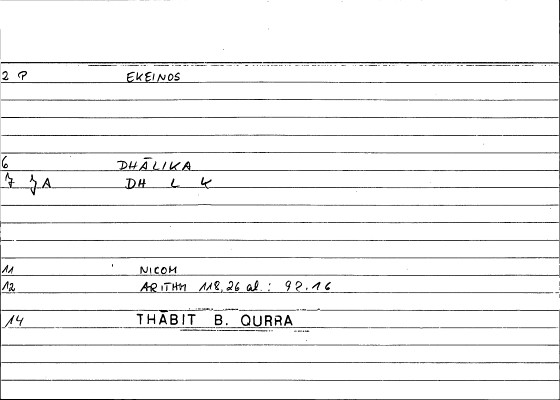 2 P EKEINOS
6 DHĀLIKA
7 JA DH L K
11 NICOM
12 ARITHM 118,26 al.: 92.16
14 THĀBIT B. QURRA